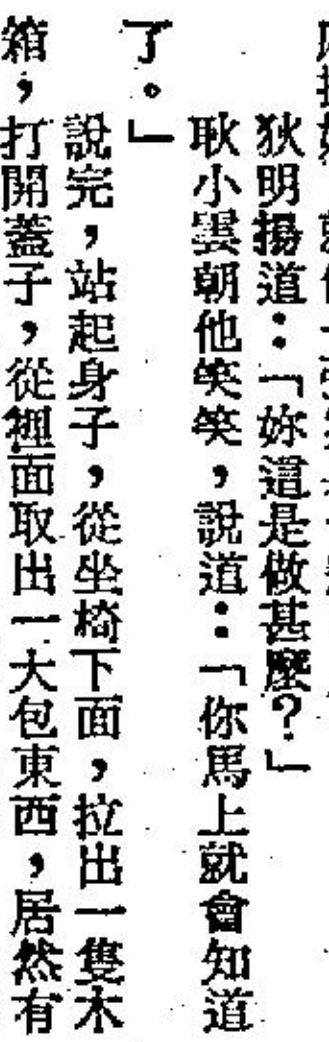 狄明揚道：「妳這是做甚麼？」
耿小雲朝他笑笑，說道：「你馬上就會知道
了。」
說完，站起身子，從坐椅下面，拉出一隻木
箱，打開蓋子，從裡面取出一大包東西，居然有